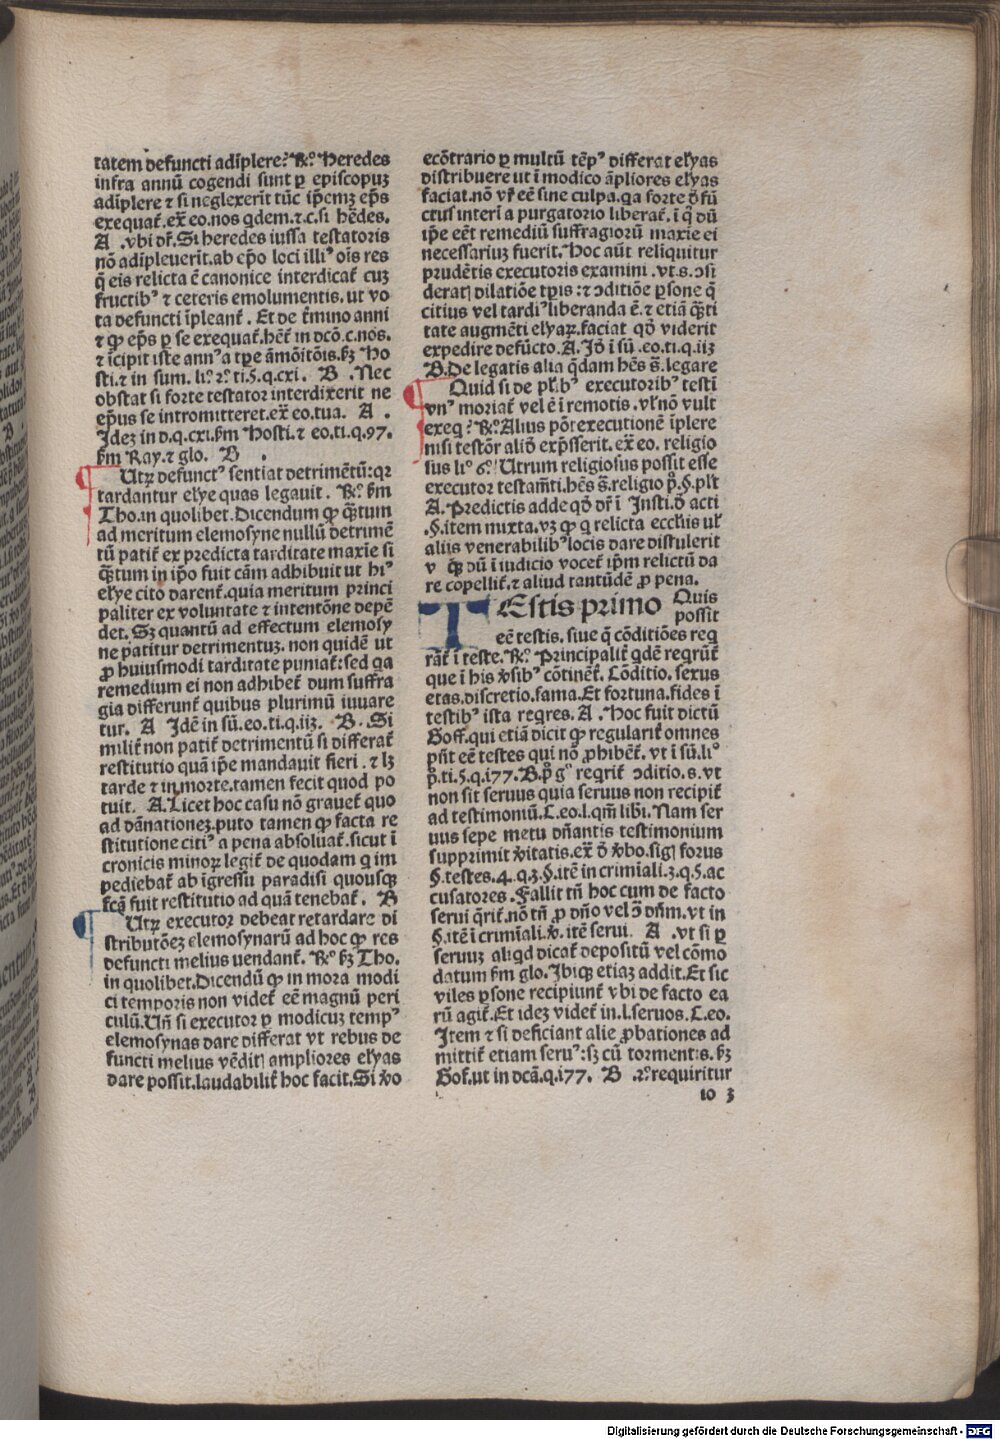 tatem defuncti adĩplere? ℞. Heredes
infra annũ cogendi sunt ꝑ episcopuꝫ
adĩplere ⁊ si neglexerit tũc ip̃emꝫ ep̃s
exequat᷑. ex̃ eo. nos qdem. ⁊.c. si hẽdes.
A . vbi dr̃. Si heredes iussa testatoris
nõ adĩpleuerit. ab ep̃o loci illi⁹ oĩs res
q̃ eis relicta ẽ canonice interdicat᷑ cuꝫ
fructib⁹ ⁊ ceteris emolumentis. ut vo
ta defuncti ĩpleant᷑ . Et de t᷑mino anni
⁊ ꝙ ep̃s ꝑ se exequat᷑. hẽt᷑ in dcõ .c. nos.
⁊ ĩcipit iste ann⁹ a tp̃e ãmõitõis. ẞꝫ Ho
sti. ⁊ in sum. li.º 2.º ti. 5. q. cxi. B . Nec
obstat si forte testator interdixerit ne
ep̃us se intromitteret. ex̃ eo. tua. A .
Idez in d. q. cxi. ẞm Hosti. ⁊ eo. ti. q. 97.
ẞm Ray. ⁊ glo. B .
Utꝝ defunct⁹ sentiat detrimẽtũ: qꝛ
tardantur elye quas legauit . ℞. ẞm
Tho. in quolibet. Dicendum ꝙ q̃tum
ad meritum elemosyne nullũ detrimẽ
tũ patit᷑ ex predicta tarditate maxĩe si
q̃tum in ip̃o fuit cãm adhibuit ut hi⁹
elye cito darent᷑. quia meritum princi
paliter ex voluntate ⁊ intentõne depẽ
det. Sꝫ quantũ ad effectum elemosy
ne patitur detrimentuꝫ. non quidẽ ut
ꝓ huiusmodi tarditate puniat᷑: sed qa
remedium ei non adhibet᷑ dum suffra
gia differunt᷑ quibus plurimũ iuuare
tur. A Idẽ in sũ. eo. ti. q. iiꝫ. B . Si
milit᷑ non patit᷑ detrimentũ si differat᷑
restitutio quã ip̃e mandauit fieri . ⁊ lꝫ
tarde ⁊ in morte. tamen fecit quod po
tuit. A. Licet hoc casu nõ grauet᷑ quo
ad dãnationeꝫ. puto tamen ꝙ facta re
stitutione citi⁹ a pena absoluat᷑. sicut ĩ
cronicis minoꝝ legit᷑ de quodam q im
pediebat᷑ ab ĩgressu paradisi quousqꝫ
fc̃a fuit restitutio ad quã tenebat᷑ . B
Utꝝ executor debeat retardare di
stributõeꝫ elemosynarũ ad hoc ꝙ res
defuncti melius uendant᷑. ℞. ẞꝫ Tho.
in quolibet. Dicendũ ꝙ in mora modi
ci temporis non videt᷑ eẽ magnũ peri
culũ. Uñ si executor ꝑ modicuꝫ temp⁹
elemosynas dare differat vt rebus de
functi melius vẽditꝭ ampliores elyas
dare possit. laudabilit᷑ hoc facit. Si v̾o
ecõtrario ꝑ multũ tẽp⁹ differat elyas
distribuere ut ĩ modico ãpliores elyas
faciat. nõ vr̃ eẽ sine culpa. qa forte d̾ fũ
ctus interĩ a purgatorio liberat᷑. ĩ q̃ dũ
ip̃e eẽt remediũ suffragioꝝ maxĩe ei
necessariuꝫ fuerit. Hoc aũt reliquitur
prudẽtis executoris examini . vt .s. ↄsi
deratꝭ dilatiõe tp̃is: ⁊ ↄditiõe ꝑsone q̃
citius vel tardi⁹ liberanda ẽ. ⁊ etiã q̃ti
tate augmẽti elyaꝝ. faciat qd̾ viderit
expedire defũcto. A. Id̾ ĩ sũ .eo. ti. q. iiꝫ
B. De legatis alia q̃dam hẽs s̃. legare
Quid si de plib⁹ executorib⁹ testĩ
vn⁹ moriat᷑ vel ẽ ĩ remotis . vl̾ nõ vult
exeq̃ ? ℞. Alius põt executionẽ ĩplere
nisi testõr aliõ exp̃sserit. ex̃ eo. religio
sus li.º 6.º Utrum religiosus possit esse
executor testam̃ti. hẽs s̃. religio p̃. §. plt̃
A. Predictis adde qd̾ dr̃ ĩ Insti. d̾ acti
.§. item mixta. vꝫ ꝙ q relicta eccl̃iis ul̾
aliis venerabilib⁹ locis dare distulerit
v q̃ dũ ĩ iudicio vocet᷑ ip̃m relictũ da
re copellit᷑. ⁊ aliud tantũdẽ ꝓ pena.
TEstis primo Quis
possit
eẽ testis. siue q̃ cõditiões req
rãt᷑ ĩ teste. ℞. Principalit᷑ qdẽ reqrũt᷑
que ĩ his v̾sib⁹ cõtinẽt᷑. Cõditio. sexus
etas. discretio. fama. Et fortuna. fides ĩ
testib⁹ ista reqres. A . Hoc fuit dictũ
Goff. qui etiã dicit ꝙ regularit᷑ omnes
pñt eẽ testes qui nõ ꝓhibẽt᷑. vt ĩ sũ. li.º
p̃. ti. 5. q. i77. B. p̃ g⁰ reqrit᷑ ↄditio. s. vt
non sit seruus quia seruus non recipit᷑
ad testimoniũ. C. eo. l. qm̃ libi. Nam ser
uus sepe metu dñantis testimonium
supprimit v̾itatis. ex̃ d̾ v̾bo. sigꝭ forus
§. testes. 4. q. 3. §. itẽ in crimĩali. 3. q. 5. ac
cusatores . Fallit tñ hoc cum de facto
serui q̃rit᷑. nõ tñ ꝓ dño vel ↄ dñm. vt in
§. itẽ ĩ crimĩali. v̾. itẽ serui. A . vt si ꝑ
seruuꝫ aliqd dicat᷑ depositũ vel cõmo
datum ẞm glo. Ibiqꝫ etiaꝫ addit. Et sic
viles ꝑsone recipiunt᷑ vbi de facto ea
rũ agit᷑. Et idez videt᷑ in. l. seruos. C. eo.
Item ⁊ si deficiant alie ꝓbationes ad
mittit᷑ etiam seru⁹: sꝫ cũ tormentis. ẞꝫ
Gof. ut in dcã. q. i77. B 2.º requiritur
10 3
Digitalisierung gefördert durch die Deutsche Forschungsgemeinschaft - DFG